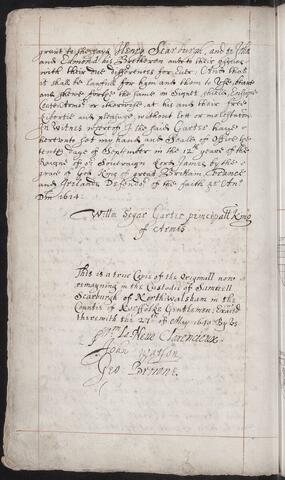 graunt to the sayd Henry Scarburgh, and to John
and Edmond his Bretheren and to their yssue
with their due differences for Euer. And that
it shall be lawfull for hym and them to Vse beare
and shewe forthe the same in Signet, shield, Ensigne
Coate Armor or otherwise at his and their free
libertie and pleasure, without lett or molestation
In Witnes wherof I the said Garter have
herevnto set my hand and Seale of Office the
tenth daye of September in the 12th yeare of the
Raigne of or Soueraign Lord James by the
grace of God King of great Brittain, France
and Ireland Defendor of the faith &c Ano
Dni 1614.
Willm Segar Garter principall King
of Armes
This is a true Copie of the Originall now
remayning in the Custodie of Samuell
Scarburgh of Northwalsham in the
Countie of Norffolke Gentleman: Examd
therewith the 27th of May 1640 By Us
Wm Le Neue Clarenceux.
John Watson
Geo. Browne.